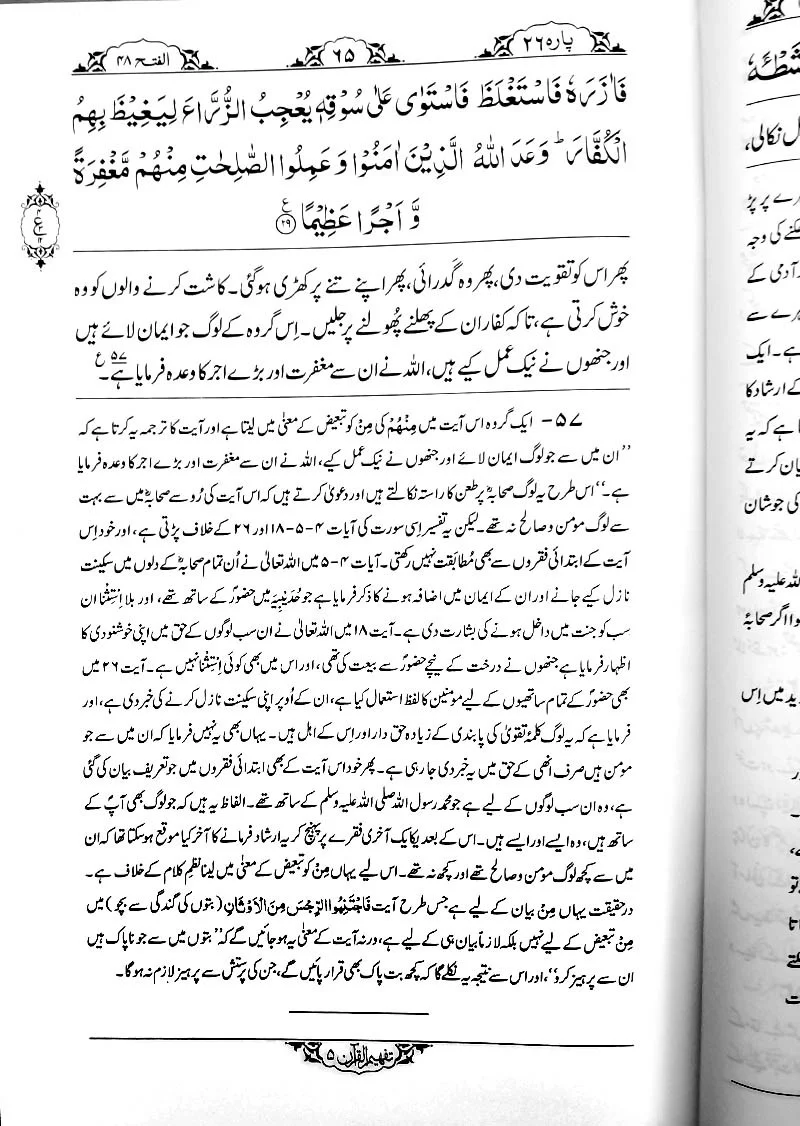 پارہ ۲۶
۶۵
الفتح ۴۸
فَاٰزَرَهٗ فَاسْتَغْلَظَ فَاسْتَوٰى عَلٰى سُوْقِهٖ يُعْجِبُ الزُّرَّاعَ لِيَغِيْظَ بِهِمُ
الْكُفَّارَ ؕ وَعَدَ اللّٰهُ الَّذِيْنَ اٰمَنُوْا وَعَمِلُوا الصّٰلِحٰتِ مِنْهُمْ مَّغْفِرَةً
وَّ اَجْرًا عَظِيْمًا ﴿۲۹﴾ ع
پھر اس کو تقویت دی، پھر وہ گدرائی، پھر اپنے تنے پر کھڑی ہوگئی۔ کاشت کرنے والوں کو وہ
خوش کرتی ہے، تاکہ کفار ان کے پھلنے پُھولنے پر جلیں۔ اِس گروہ کے لوگ جو ایمان لائے ہیں
اور جنھوں نے نیک عمل کیے ہیں، اللہ نے ان سے مغفرت اور بڑے اجر کا وعدہ فرمایا ہے۔ ۵۷ ع
۵۷- ایک گروہ اس آیت میں مِنْهُمْ کی مِنْ کو تبعیض کے معنیٰ میں لیتا ہے اور آیت کا ترجمہ یہ کرتا ہے کہ
’’ان میں سے جو لوگ ایمان لائے اور جنھوں نے نیک عمل کیے، اللہ نے ان سے مغفرت اور بڑے اجر کا وعدہ فرمایا
ہے۔‘‘ اس طرح یہ لوگ صحابہؓ پر طعن کا راستہ نکالتے ہیں اور دعویٰ کرتے ہیں کہ اس آیت کی رُو سے صحابہؓ میں سے بہت
سے لوگ مومن و صالح نہ تھے۔ لیکن یہ تفسیر اِسی سورت کی آیات ۴-۵-۱۸ اور ۲۶ کے خلاف پڑتی ہے، اور خود اِس
آیت کے ابتدائی فقروں سے بھی مُطابقت نہیں رکھتی۔ آیات ۴-۵ میں اللہ تعالیٰ نے اُن تمام صحابہؓ کے دلوں میں سکینت
نازل کیے جانے اور ان کے ایمان میں اضافہ ہونے کا ذکر فرمایا ہے جو حُدَیبِیَہ میں حضورؐ کے ساتھ تھے، اور بلا اِستِثنا ان
سب کو جنت میں داخل ہونے کی بشارت دی ہے۔ آیت ۱۸ میں اللہ تعالیٰ نے ان سب لوگوں کے حق میں اپنی خوشنودی کا
اظہار فرمایا ہے جنھوں نے درخت کے نیچے حضورؐ سے بیعت کی تھی، اور اس میں بھی کوئی اِستِثنا نہیں ہے۔ آیت ۲۶ میں
بھی حضورؐ کے تمام ساتھیوں کے لیے مومنین کا لفظ استعمال کیا ہے، ان کے اُوپر اپنی سکینت نازل کرنے کی خبر دی ہے، اور
فرمایا ہے کہ یہ لوگ کلمۂ تقویٰ کی پابندی کے زیادہ حق دار اور اِس کے اہل ہیں۔ یہاں بھی یہ نہیں فرمایا کہ ان میں سے جو
مومن ہیں صرف انھی کے حق میں یہ خبر دی جا رہی ہے۔ پھر خود اس آیت کے بھی ابتدائی فقروں میں جو تعریف بیان کی گئی
ہے، وہ ان سب لوگوں کے لیے ہے جو محمد رسول اللہ صلی اللہ علیہ وسلم کے ساتھ تھے۔ الفاظ یہ ہیں کہ جو لوگ بھی آپؐ کے
ساتھ ہیں، وہ ایسے اور ایسے ہیں۔ اس کے بعد یکایک آخری فقرے پر پہنچ کر یہ ارشاد فرمانے کا آخر کیا موقع ہوسکتا تھا کہ ان
میں سے کچھ لوگ مومن و صالح تھے اور کچھ نہ تھے۔ اس لیے یہاں مِنْ کو تبعیض کے معنیٰ میں لینا نظمِ کلام کے خلاف ہے۔
درحقیقت یہاں مِنْ بیان کے لیے ہے جس طرح آیت فَاجْتَنِبُوا الرِّجْسَ مِنَ الْاَوْثَانِ (بتوں کی گندگی سے بچو) میں
مِنْ تبعیض کے لیے نہیں بلکہ لازماً بیان ہی کے لیے ہے، ورنہ آیت کے معنیٰ یہ ہو جائیں گے کہ ’’بتوں میں سے جو ناپاک ہیں
ان سے پرہیز کرو‘‘، اور اس سے نتیجہ یہ نکلے گا کہ کچھ بت پاک بھی قرار پائیں گے، جن کی پرستش سے پرہیز لازم نہ ہوگا۔
تفہیم القرآن ۵